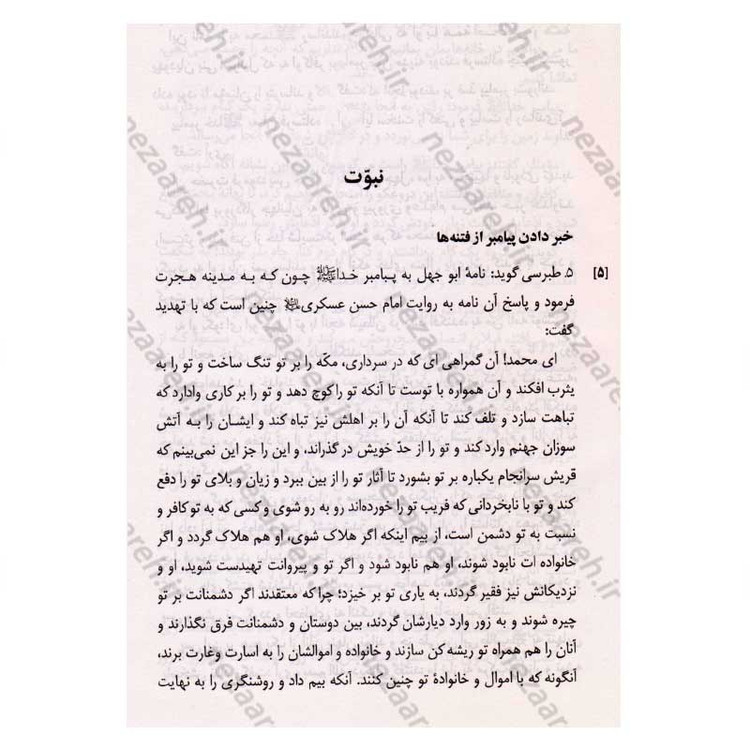 نبوّت
خبر دادن پیامبر از فتنه‌ها
[۵] ۵. طبرسی گوید: نامهٔ ابو جهل به پیامبر خداﷺ چون که به مدینه هجرت
فرمود و پاسخ آن نامه به روایت امام حسن عسکری چنین است که با تهدید
گفت:
ای محمد! آن گمراهی ای که در سرداری، مکّه را بر تو تنگ ساخت و تو را به
یثرب افکند و آن همواره با توست تا آنکه تو را کوچ دهد و تو را بر کاری وادارد که
تباهت سازد و تلف کند تا آنکه آن را بر اهلش نیز تباه کند و ایشان را به آتش
سوزان جهنم وارد کند و تو را از حدّ خویش در گذراند، و این را جز این نمی‌بینم که
قریش سرانجام یکباره بر تو بشورد تا آثار تو را از بین ببرد و زیان و بلای تو را دفع
کند و تو با نابخردانی که فریب تو را خورده‌اند رو به رو شوی و کسی که به تو کافر و
نسبت به تو دشمن است، از بیم اینکه اگر هلاک شوی، او هم هلاک گردد و اگر
خانواده ات نابود شوند، او هم نابود شود و اگر تو و پیروانت تهیدست شوید، او و
نزدیکانش نیز فقیر گردند، به یاری تو بر خیزد؛ چرا که معتقدند اگر دشمنانت بر تو
چیره شوند و به زور وارد دیارشان گردند، بین دوستان و دشمنانت فرق نگذارند و
آنان را هم همراه تو ریشه کن سازند و خانواده و اموالشان را به اسارت و غارت برند،
آنگونه که با اموال و خانوادهٔ تو چنین کنند. آنکه بیم داد و روشنگری را به نهایت
nezaareh.ir